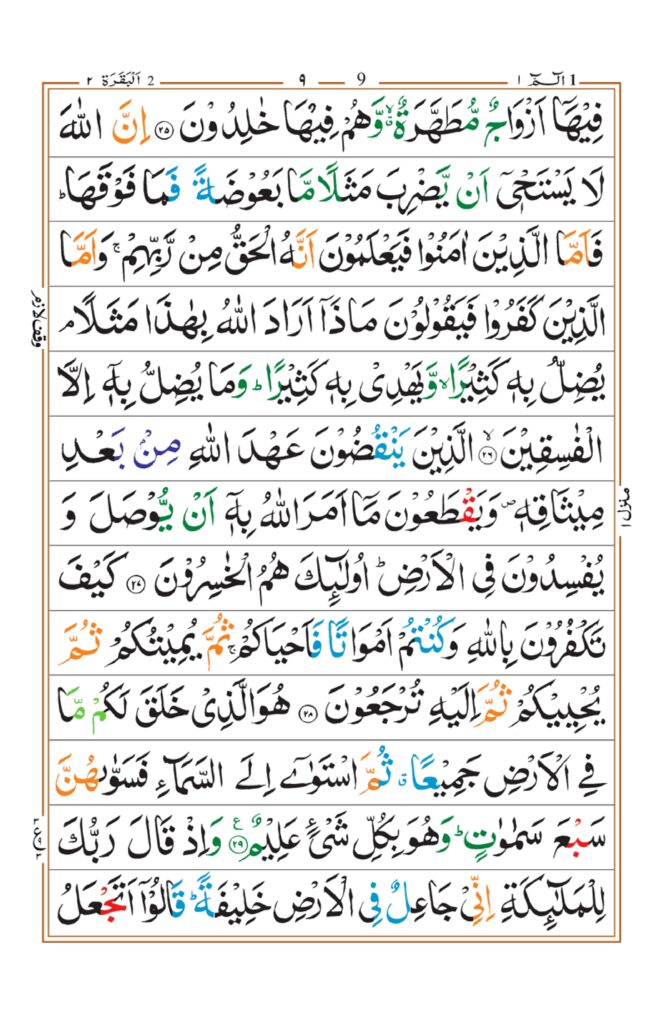 1 الٓمّٓ ١
9 ٩
2 اَلْبَقَرَة ٢
فِيْهَاۤ اَزْوَاجٌ مُّطَهَّرَةٌ ۙ وَّهُمْ فِيْهَا خٰلِدُوْنَ ﴿۲۵﴾ اِنَّ اللّٰهَ
لَا يَسْتَحْيٖۤ اَنْ يَّضْرِبَ مَثَلًا مَّا بَعُوْضَةً فَمَا فَوْقَهَا ؕ
فَاَمَّا الَّذِيْنَ اٰمَنُوْا فَيَعْلَمُوْنَ اَنَّهُ الْحَقُّ مِنْ رَّبِّهِمْ ۚ وَاَمَّا
الَّذِيْنَ كَفَرُوْا فَيَقُوْلُوْنَ مَاذَاۤ اَرَادَ اللّٰهُ بِهٰذَا مَثَلًا ۘ
وقف لازم
يُضِلُّ بِهٖ كَثِيْرًا ۙ وَّيَهْدِيْ بِهٖ كَثِيْرًا ؕ وَمَا يُضِلُّ بِهٖۤ اِلَّا
الْفٰسِقِيْنَ ۙ﴿۲۶﴾ الَّذِيْنَ يَنْقُضُوْنَ عَهْدَ اللّٰهِ مِنْۢ بَعْدِ
مِيْثَاقِهٖ ۪ وَيَقْطَعُوْنَ مَاۤ اَمَرَ اللّٰهُ بِهٖۤ اَنْ يُّوْصَلَ وَ
منزل ١
يُفْسِدُوْنَ فِي الْاَرْضِ ؕ اُولٰٓئِكَ هُمُ الْخٰسِرُوْنَ ﴿۲۷﴾ كَيْفَ
تَكْفُرُوْنَ بِاللّٰهِ وَكُنْتُمْ اَمْوَاتًا فَاَحْيَاكُمْ ۚ ثُمَّ يُمِيْتُكُمْ ثُمَّ
يُحْيِيْكُمْ ثُمَّ اِلَيْهِ تُرْجَعُوْنَ ﴿۲۸﴾ هُوَ الَّذِيْ خَلَقَ لَكُمْ مَّا
فِي الْاَرْضِ جَمِيْعًا ۗ ثُمَّ اسْتَوٰۤى اِلَى السَّمَآءِ فَسَوّٰىهُنَّ
سَبْعَ سَمٰوٰتٍ ؕ وَهُوَ بِكُلِّ شَيْءٍ عَلِيْمٌ ﴿۲۹﴾ ع وَاِذْ قَالَ رَبُّكَ
لِلْمَلٰٓئِكَةِ اِنِّيْ جَاعِلٌ فِي الْاَرْضِ خَلِيْفَةً ؕ قَالُوْۤا اَتَجْعَلُ